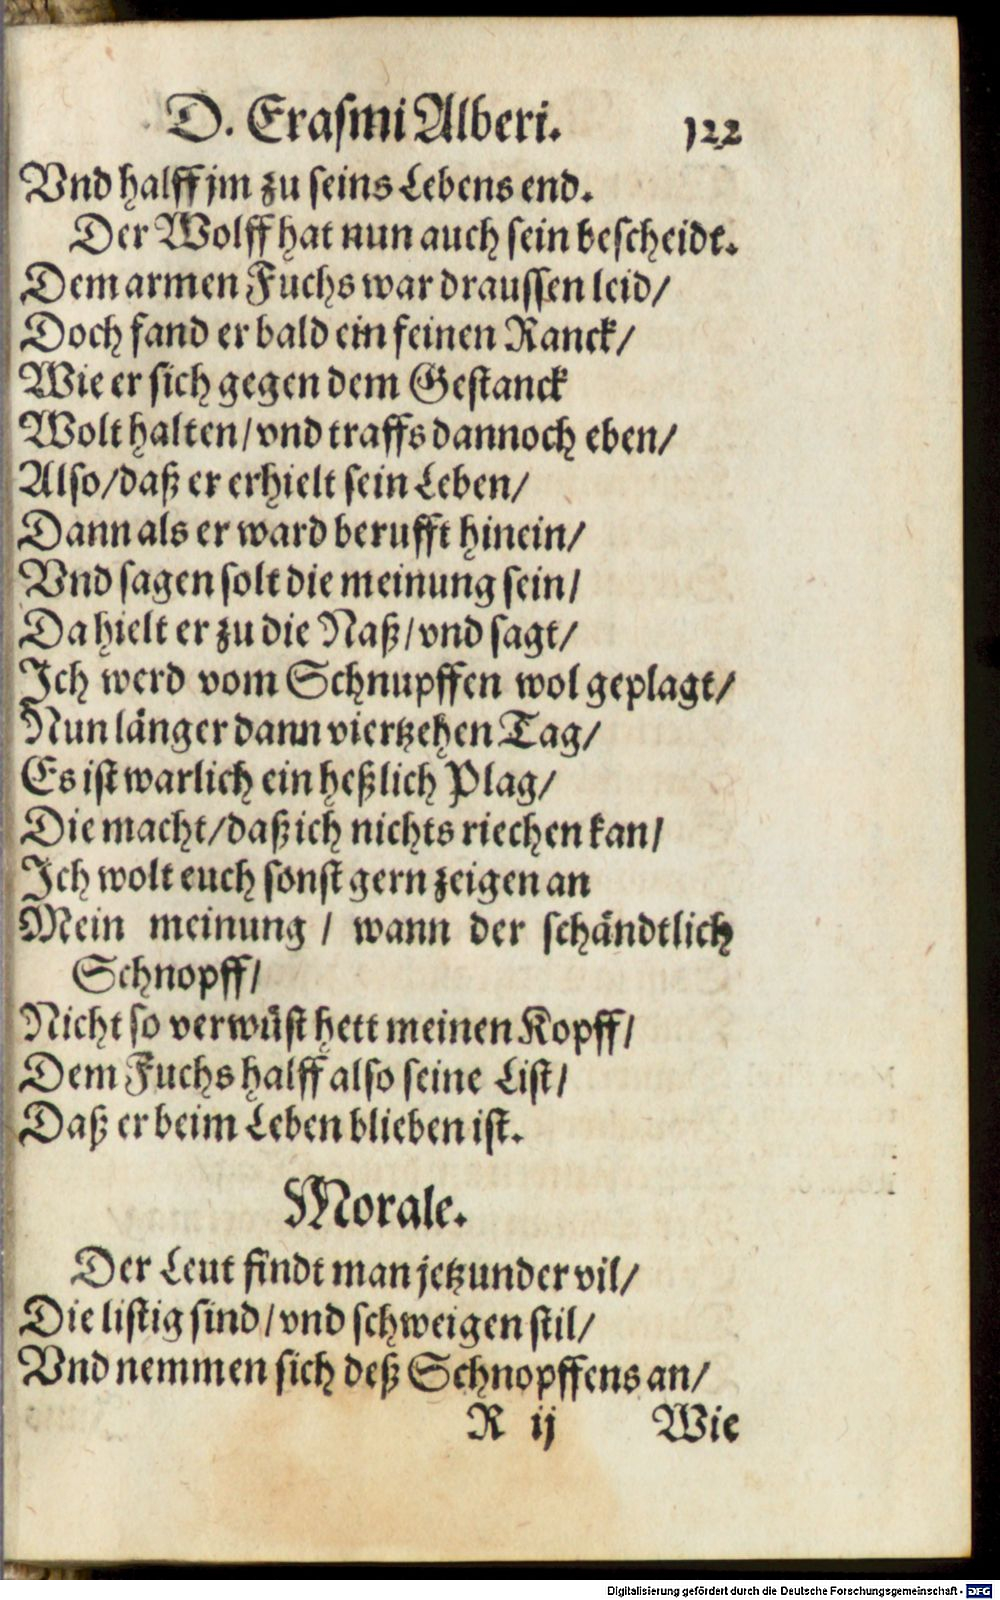 D. Erasmi Alberi. 122
Vnd halff jm zu seins Lebens end.
Der Wolff hat nun auch sein bescheidt.
Dem armen Fuchs war draussen leid/
Doch fand er bald ein feinen Ranck/
Wie er sich gegen dem Gestanck
Wolt halten/vnd traffs dannoch eben/
Also/daß er erhielt sein Leben/
Dann als er ward berufft hinein/
Vnd sagen solt die meinung sein/
Da hielt er zu die Naß/vnd sagt/
Ich werd vom Schnupffen wol geplagt/
Nun länger dann viertzehen Tag/
Es ist warlich ein heßlich Plag/
Die macht/daß ich nichts riechen kan/
Ich wolt euch sonst gern zeigen an
Mein meinung / wann der schändtlich
Schnopff/
Nicht so verwüst hett meinen Kopff/
Dem Fuchs halff also seine List/
Daß er beim Leben blieben ist.
Morale.
Der Leut findt man jetzunder vil/
Die listig sind/vnd schweigen stil/
Vnd nemmen sich deß Schnopffens an/
R ij Wie
Digitalisierung gefördert durch die Deutsche Forschungsgemeinschaft - DFG